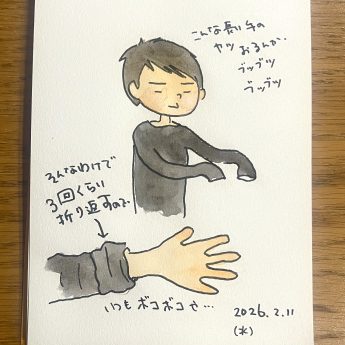 こんな長い手の
ヤツおるんか。
ブツブツ
ブツブツ
そんなわけで
3回くらい
折り返すので
いつもボコボコや…
2026.2.11
(水)